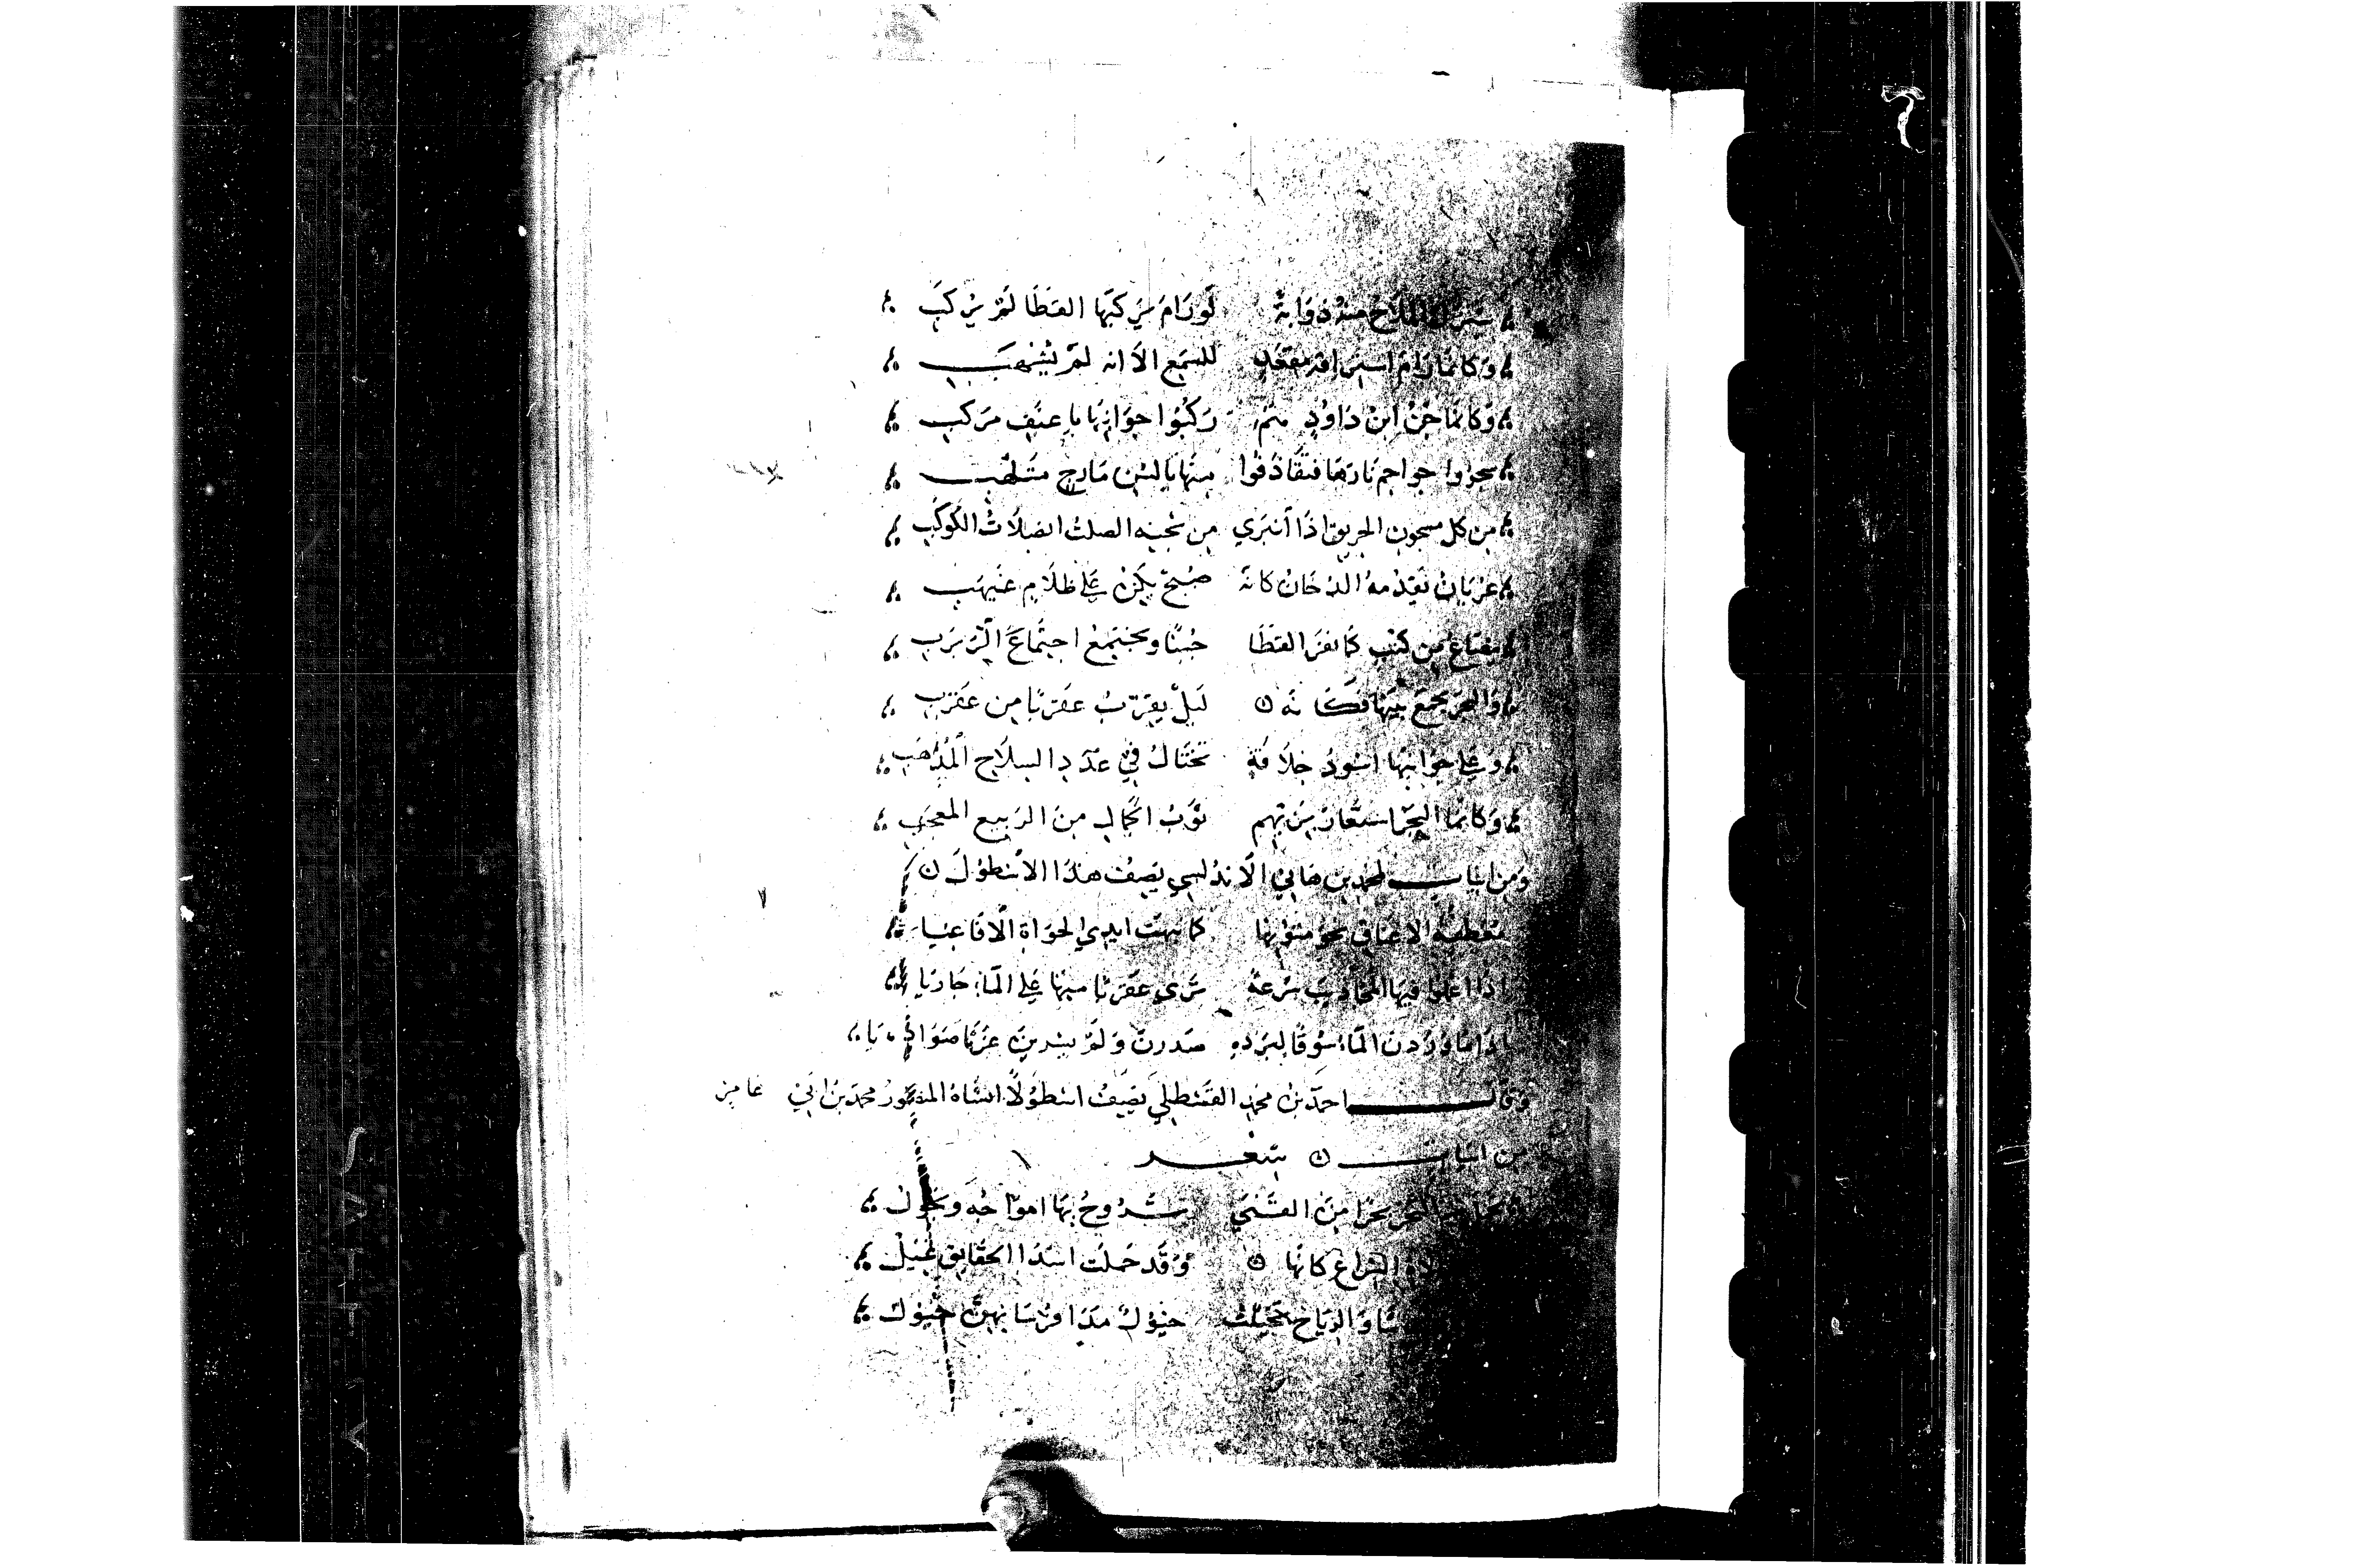 يتنزل الملاح منه ذوابة لَو رَامَ يَركبَها القطَا لَمْ يَركَبِ
وَكَانمَا رَامَ استراقة مقعد للسَمع الاَ انه لَمْ يُشْهَبِ
وَكَانمَا جِنْ ابن دَاودٍ هُمُ رَكبُوا جوَانِبَهَا باعنَف مَركب
سجروا جواحم نَارهَا فتقَاذفُوا منهَا بالسُن مَارِج متَلهب
من كل مسجون الحريق اذَا اَنبَرَي من سجنه انصلت انصلاَتَ الكَوكَبِ
عُريَان يَقدُمهُ الدُخَان كانهُ صُبحٌ يكُرّ عَلي ظلاَمٍ غَيهَبِ
من كثب كَما نفرَ القطَا حُسنًا ويجتمعُ اجتمَاعَ الرَبرَبِ
وَالبحر يجمع بينَهَا فكَانه لَيلٌ يقرّبُ عَقربًا من عَقرَبِ
وَعَلي جوَانبهَا اسُودُ خِلاَفة تختَالُ فيْ عدَدِ السلاَح المُذهَبِ
وَكَانمَا البَحرُ استعَارَ بزيّهم ثَوبُ الجمَالِ منَ الرَبيع المعجَبِ
وَمن ابيات لمحمد بن هَانِي الاَندُلسي يَصِفُ هذَا الاسْطُولَ
معطفة الاعنَاق نحو متونِهَا كما نبهَت ايدي الحوَاة الاَفَاعيَا
اذَا اعملوا فيهَا المجَاذِيب سُرعَةً تَرَي عَقربًا منهَا عَلي المَاءِ جَاريَا
اذَا مَا وَرَدنَ المَاءَ شَوقًا لِبَردهِ صَدرنَ وَلَمْ يشربنَ عَزفًا صَوَاديَا
وَقَال احمَد بن محمد القَسْطَلي يَصِفُ اسْطُولاً انشَاهُ المنصُورُ محمد بن ابَيْ عَامِر
من ابيَات شعر
البَحر بحرًا منَ القَنَا يَرُوحُ بهَا امْوَاجُه وَيجُولُ
الشراع كانهَا وَقَد حَملَت اسْدَ الحقَائِق غيْلُ
وَالرياح تخَيَّلَت خيُولٌ مَدَا فرسَانهنَّ خيُولُ